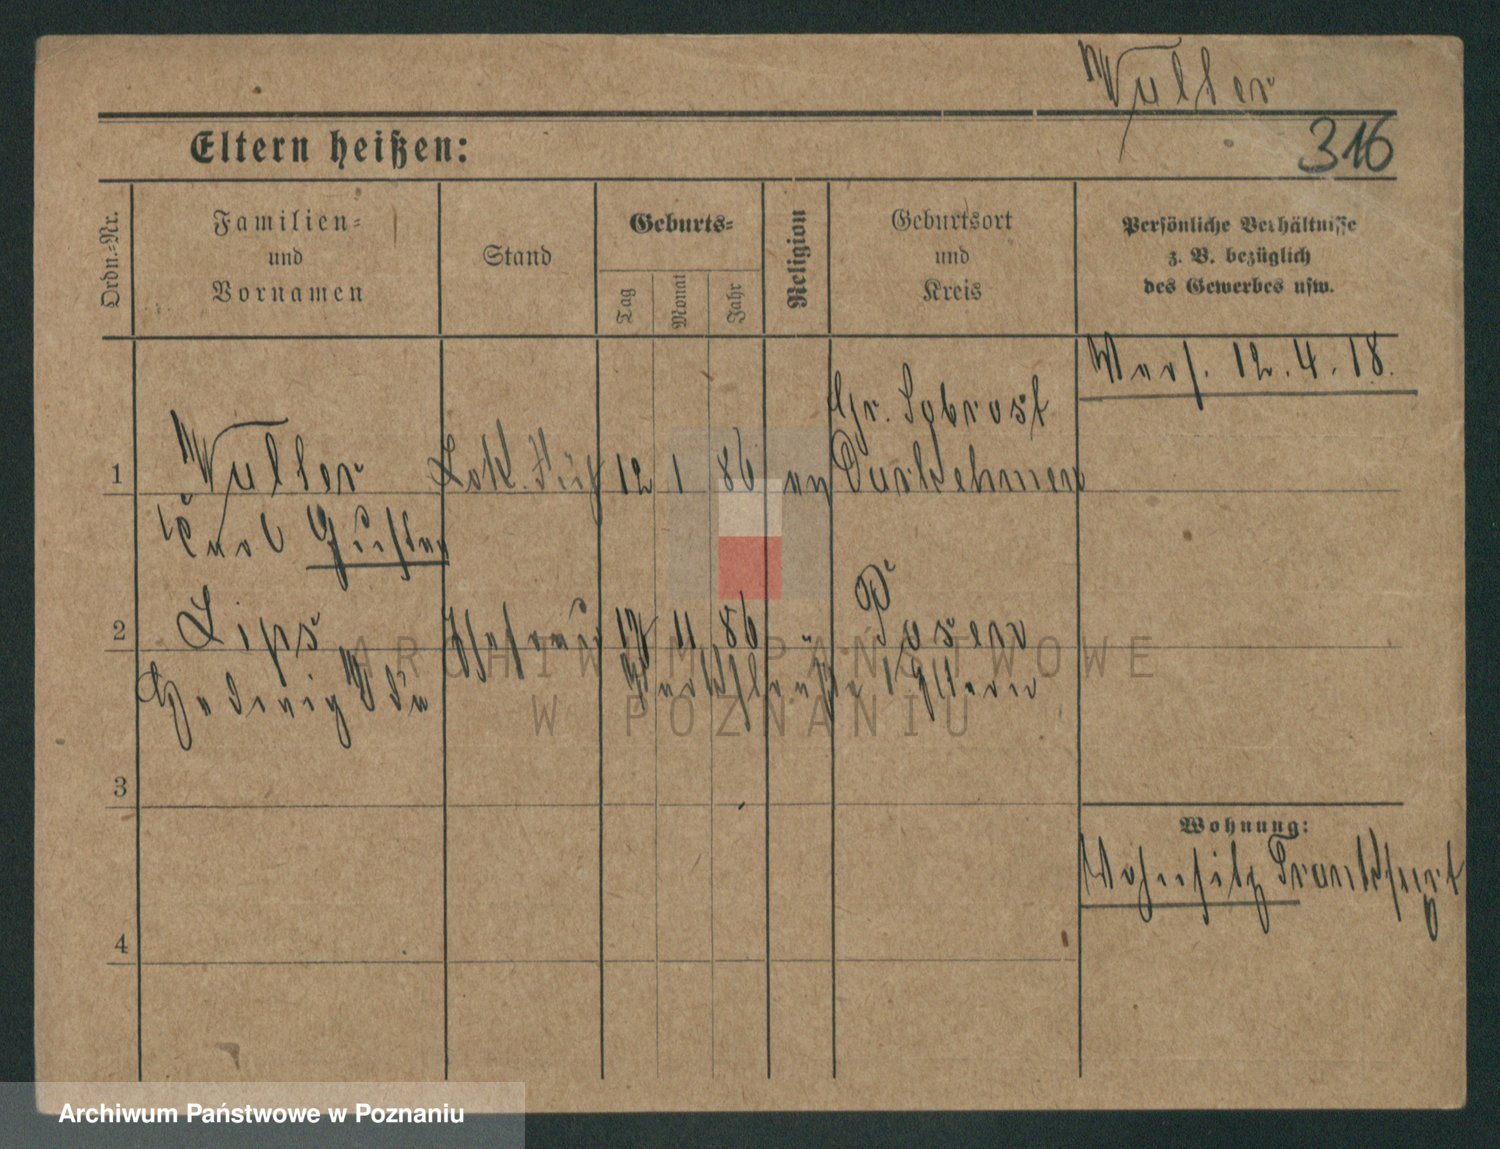 Wuller
Eltern heißen:
316
Ordn.-Nr.
Familien-
und
Vornamen
Stand
Geburts-
Tag
Monat
Jahr
Religion
Geburtsort
und
Kreis
Persönliche Verhältnisse
z. B. bezüglich
des Gewerbes usw.
12.4.18.
Gr. Sobrost
1 Wuller 12 1 86 ev Darkehmen
Carl Gustav
2 Lips Ehefrau 17 11 86 Posen
Hedwig bei Eltern
3
Wohnung:
Wohnsitz Frankfurt
4
ARCHIWUM PAŃSTWOWE
W POZNANIU
Archiwum Państwowe w Poznaniu